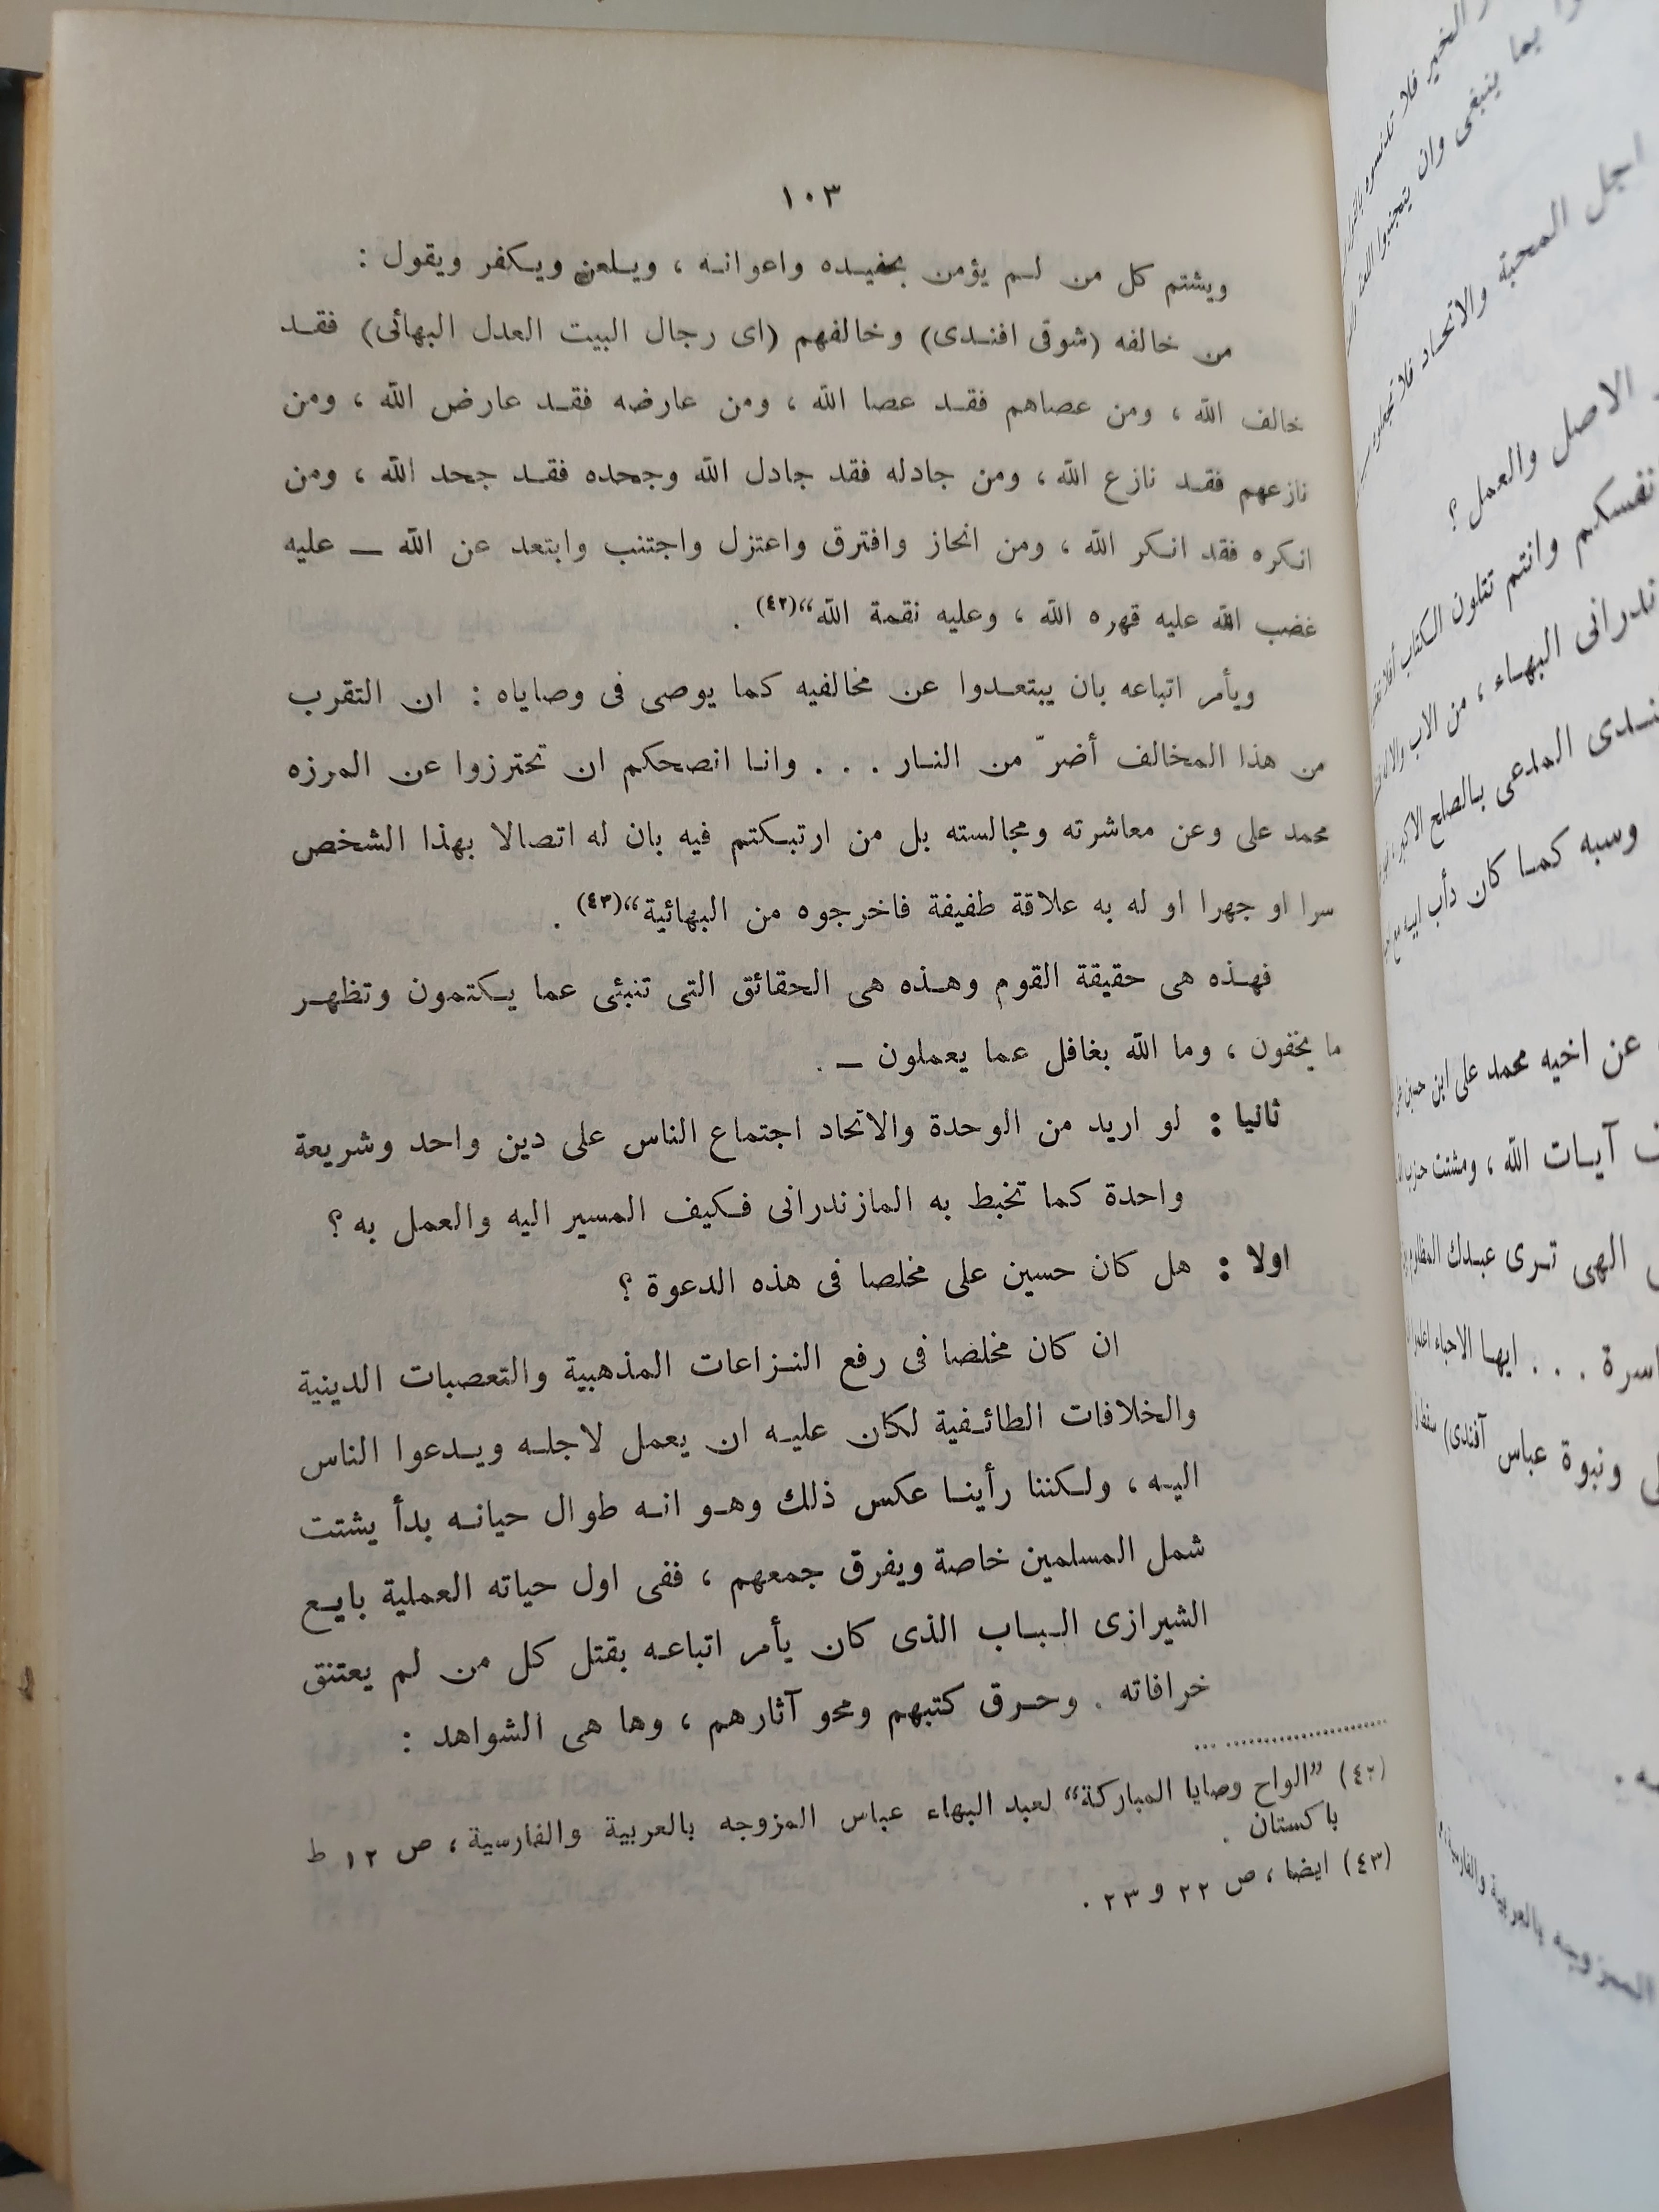 ١٠٣
ويشتم كل من لم يؤمن بحفيده واعوانه ، ويلعن ويكفر ويقول :
من خالفه (شوقى افندى) وخالفهم (اى رجال البيت العدل البهائى) فقد
خالف الله ، ومن عصاهم فقد عصا الله ، ومن عارضه فقد عارض الله ، ومن
نازعهم فقد نازع الله ، ومن جادله فقد جادل الله وجحده فقد جحد الله ، ومن
انكره فقد انكر الله ، ومن انحاز وافترق واعتزل واجتنب وابتعد عن الله — عليه
غضب الله عليه قهره الله ، وعليه نقمة الله“(٤٢) .
ويأمر اتباعه بان يبتعدوا عن مخالفيه كما يوصى فى وصاياه : ان التقرب
من هذا المخالف أضرّ من النار . . . وانا انصحكم ان تحترزوا عن المرزه
محمد على وعن معاشرته ومجالسته بل من ارتبكتم فيه بان له اتصالا بهذا الشخص
سرا او جهرا او له به علاقة طفيفة فاخرجوه من البهائية“(٤٣) .
فهذه هى حقيقة القوم وهذه هى الحقائق التى تنبئى عما يكتمون وتظهر
ما يخفون ، وما الله بغافل عما يعملون — .
ثانيا : لو اريد من الوحدة والاتحاد اجتماع الناس على دين واحد وشريعة
واحدة كما تخبط به المازندرانى فكيف المسير اليه والعمل به ؟
اولا : هل كان حسين على مخلصا فى هذه الدعوة ؟
ان كان مخلصا فى رفع النزاعات المذهبية والتعصبات الدينية
والخلافات الطائفية لكان عليه ان يعمل لاجله ويدعوا الناس
اليه ، ولكننا رأينا عكس ذلك وهو انه طوال حياته بدأ يشتت
شمل المسلمين خاصة ويفرق جمعهم ، ففى اول حياته العملية بايع
الشيرازى الباب الذى كان يأمر اتباعه بقتل كل من لم يعتنق
خرافاته . وحرق كتبهم ومحو آثارهم ، وها هى الشواهد :
(٤٢) ”الواح وصايا المباركة“ لعبد البهاء عباس المزوجه بالعربية والفارسية ، ص ١٢ ط
باكستان .
(٤٣) ايضا ، ص ٢٢ و ٢٣ .
الخير فلا
بما ينبغى وان يتجنبوا
اجل المحبة والاتحاد
الاصل والعمل ؟
وانتم تتلون الكتاب
البهاء ، من الاب
المدعى بالصلح
وسبه كما كان دأب
عن اخيه محمد على ابن
آيات الله ، ومشتت
الهى ترى عبدك
. . . ايها الاحباء
ونبوة عباس آفندى)
بالعربية